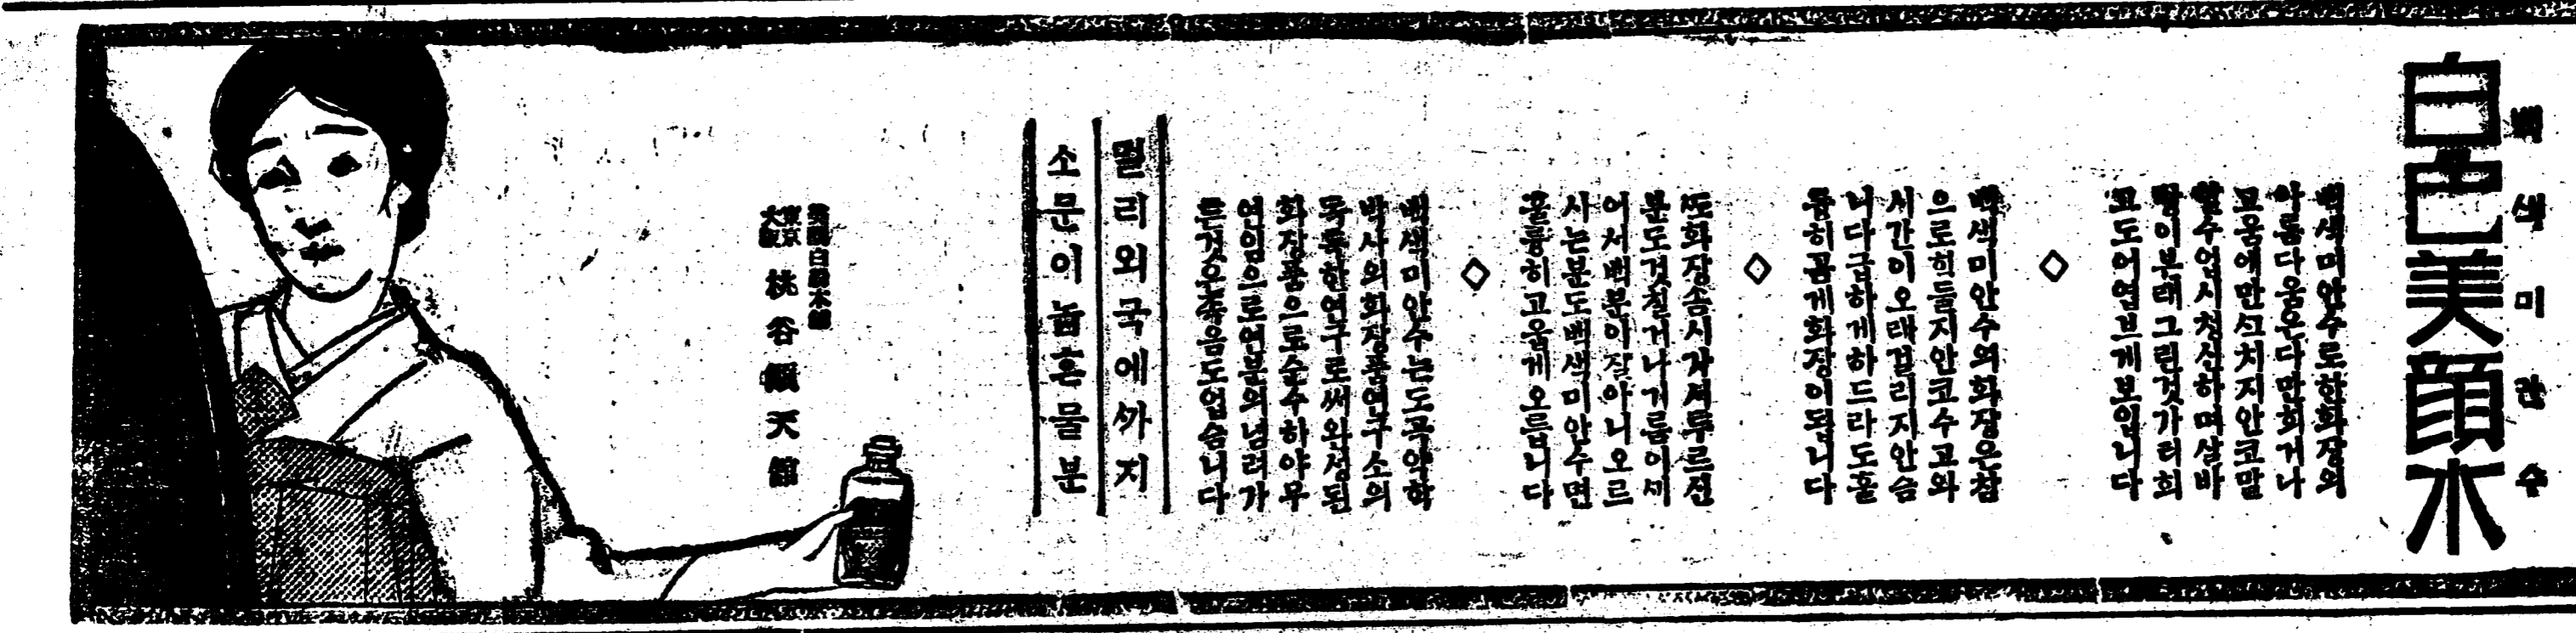 白色美顔水
백색미안수
백색미안수로한화장의
아름다움은다만희거나
고흠에만끗치지안코말
할수업시청신하며살바
탕이본래그런것가티희
고도어엽브게보입니다
◇
백색미안수의화장은참
으로힘들지안코수고와
시간이오래걸리지안슴
니다급하게하드라도훌
륭히곱게화장이됩니다
◇
또화장솜시가서투르신
분도것칠거나기름이세
어서백분이잘아니오르
시는분도백색미안수면
훌륭히고웁게오릅니다
◇
백색미안수는도곡약학
박사의화장품연구소의
독특한연구로써완성된
화장품으로순수하야무
연임으로연독의념려가
튼것은족음도업슴니다
멀리외국에까지
소문이놉흔물분
東京
大阪
桃谷順天館